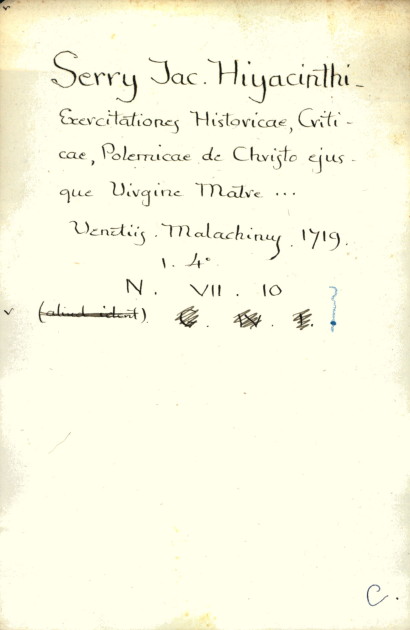 Serry Jac. Hiyacinthi-
Exercitationes Historicae, Criti-
cae, Polemicae de Christo ejus-
que Virgine Matre ...
Venetiis. Malachinus. 1719.
1. 4°
N. VII. 10
(aliud ident)
C.